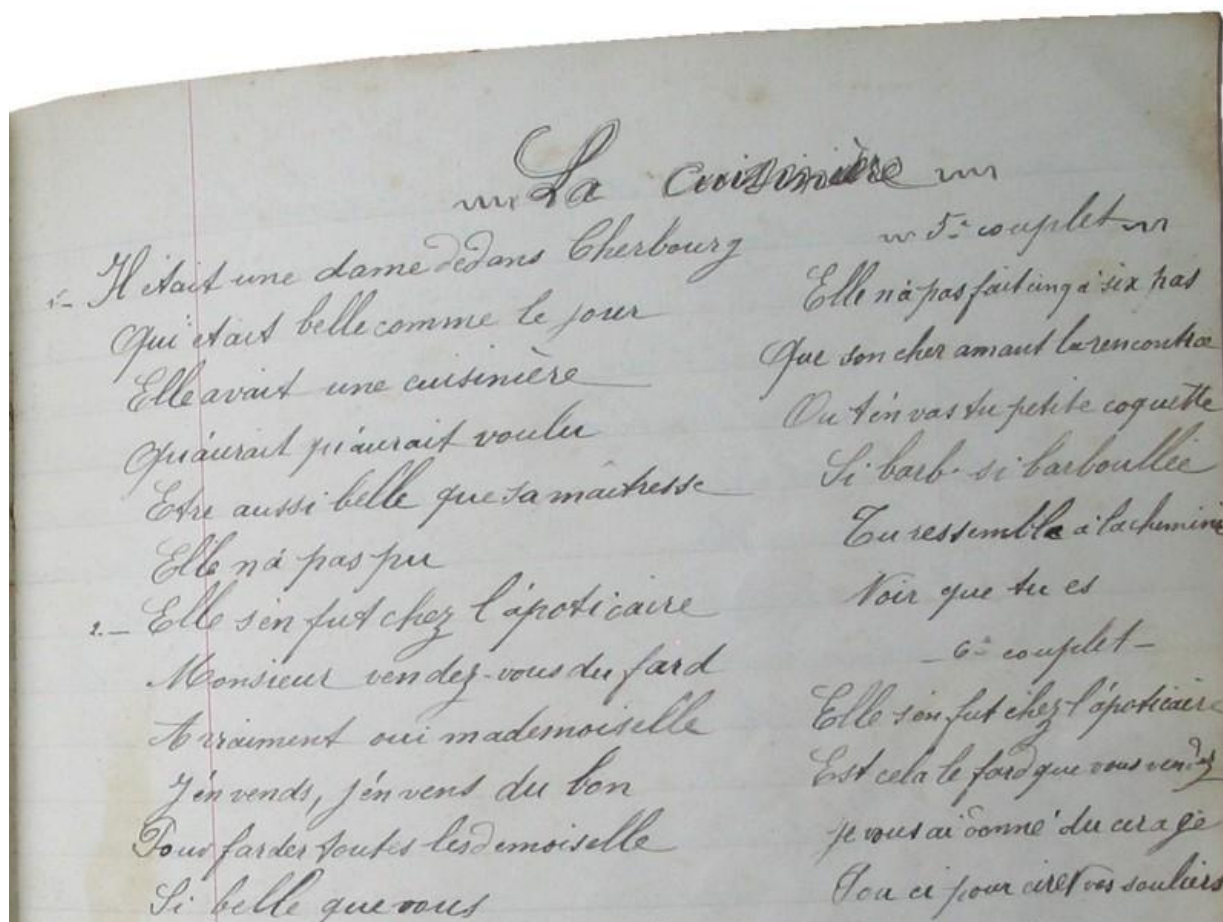 La cuisinière
1- Il était une dame dedans Cherbourg
Qui était belle comme le jour
Elle avait une cuisinière
Qu'aurait qu'aurait voulu
Etre aussi belle que sa maîtresse
Elle n'a pas pu
2.- Elle s'en fut chez l'apoticaire
Monsieur vendez-vous du fard
A vraiment oui mademoiselle
J'en vends, j'en vens du bon
Pour farder toutes les demoiselle
Si belle que vous
5e couplet
Elle n'a pas fait cinq à six pas
Que son cher amant la rencontra
Ou t'en vas tu petite coquette
Si barb. si barboullée
Tu ressemble à la chemine
Noir que tu es
- 6e couplet -
Elle s'en fut chez l'apoticaire
Est cela le fard que vous vendez
je vous ai donné du cirage
pour cirer vos souliers